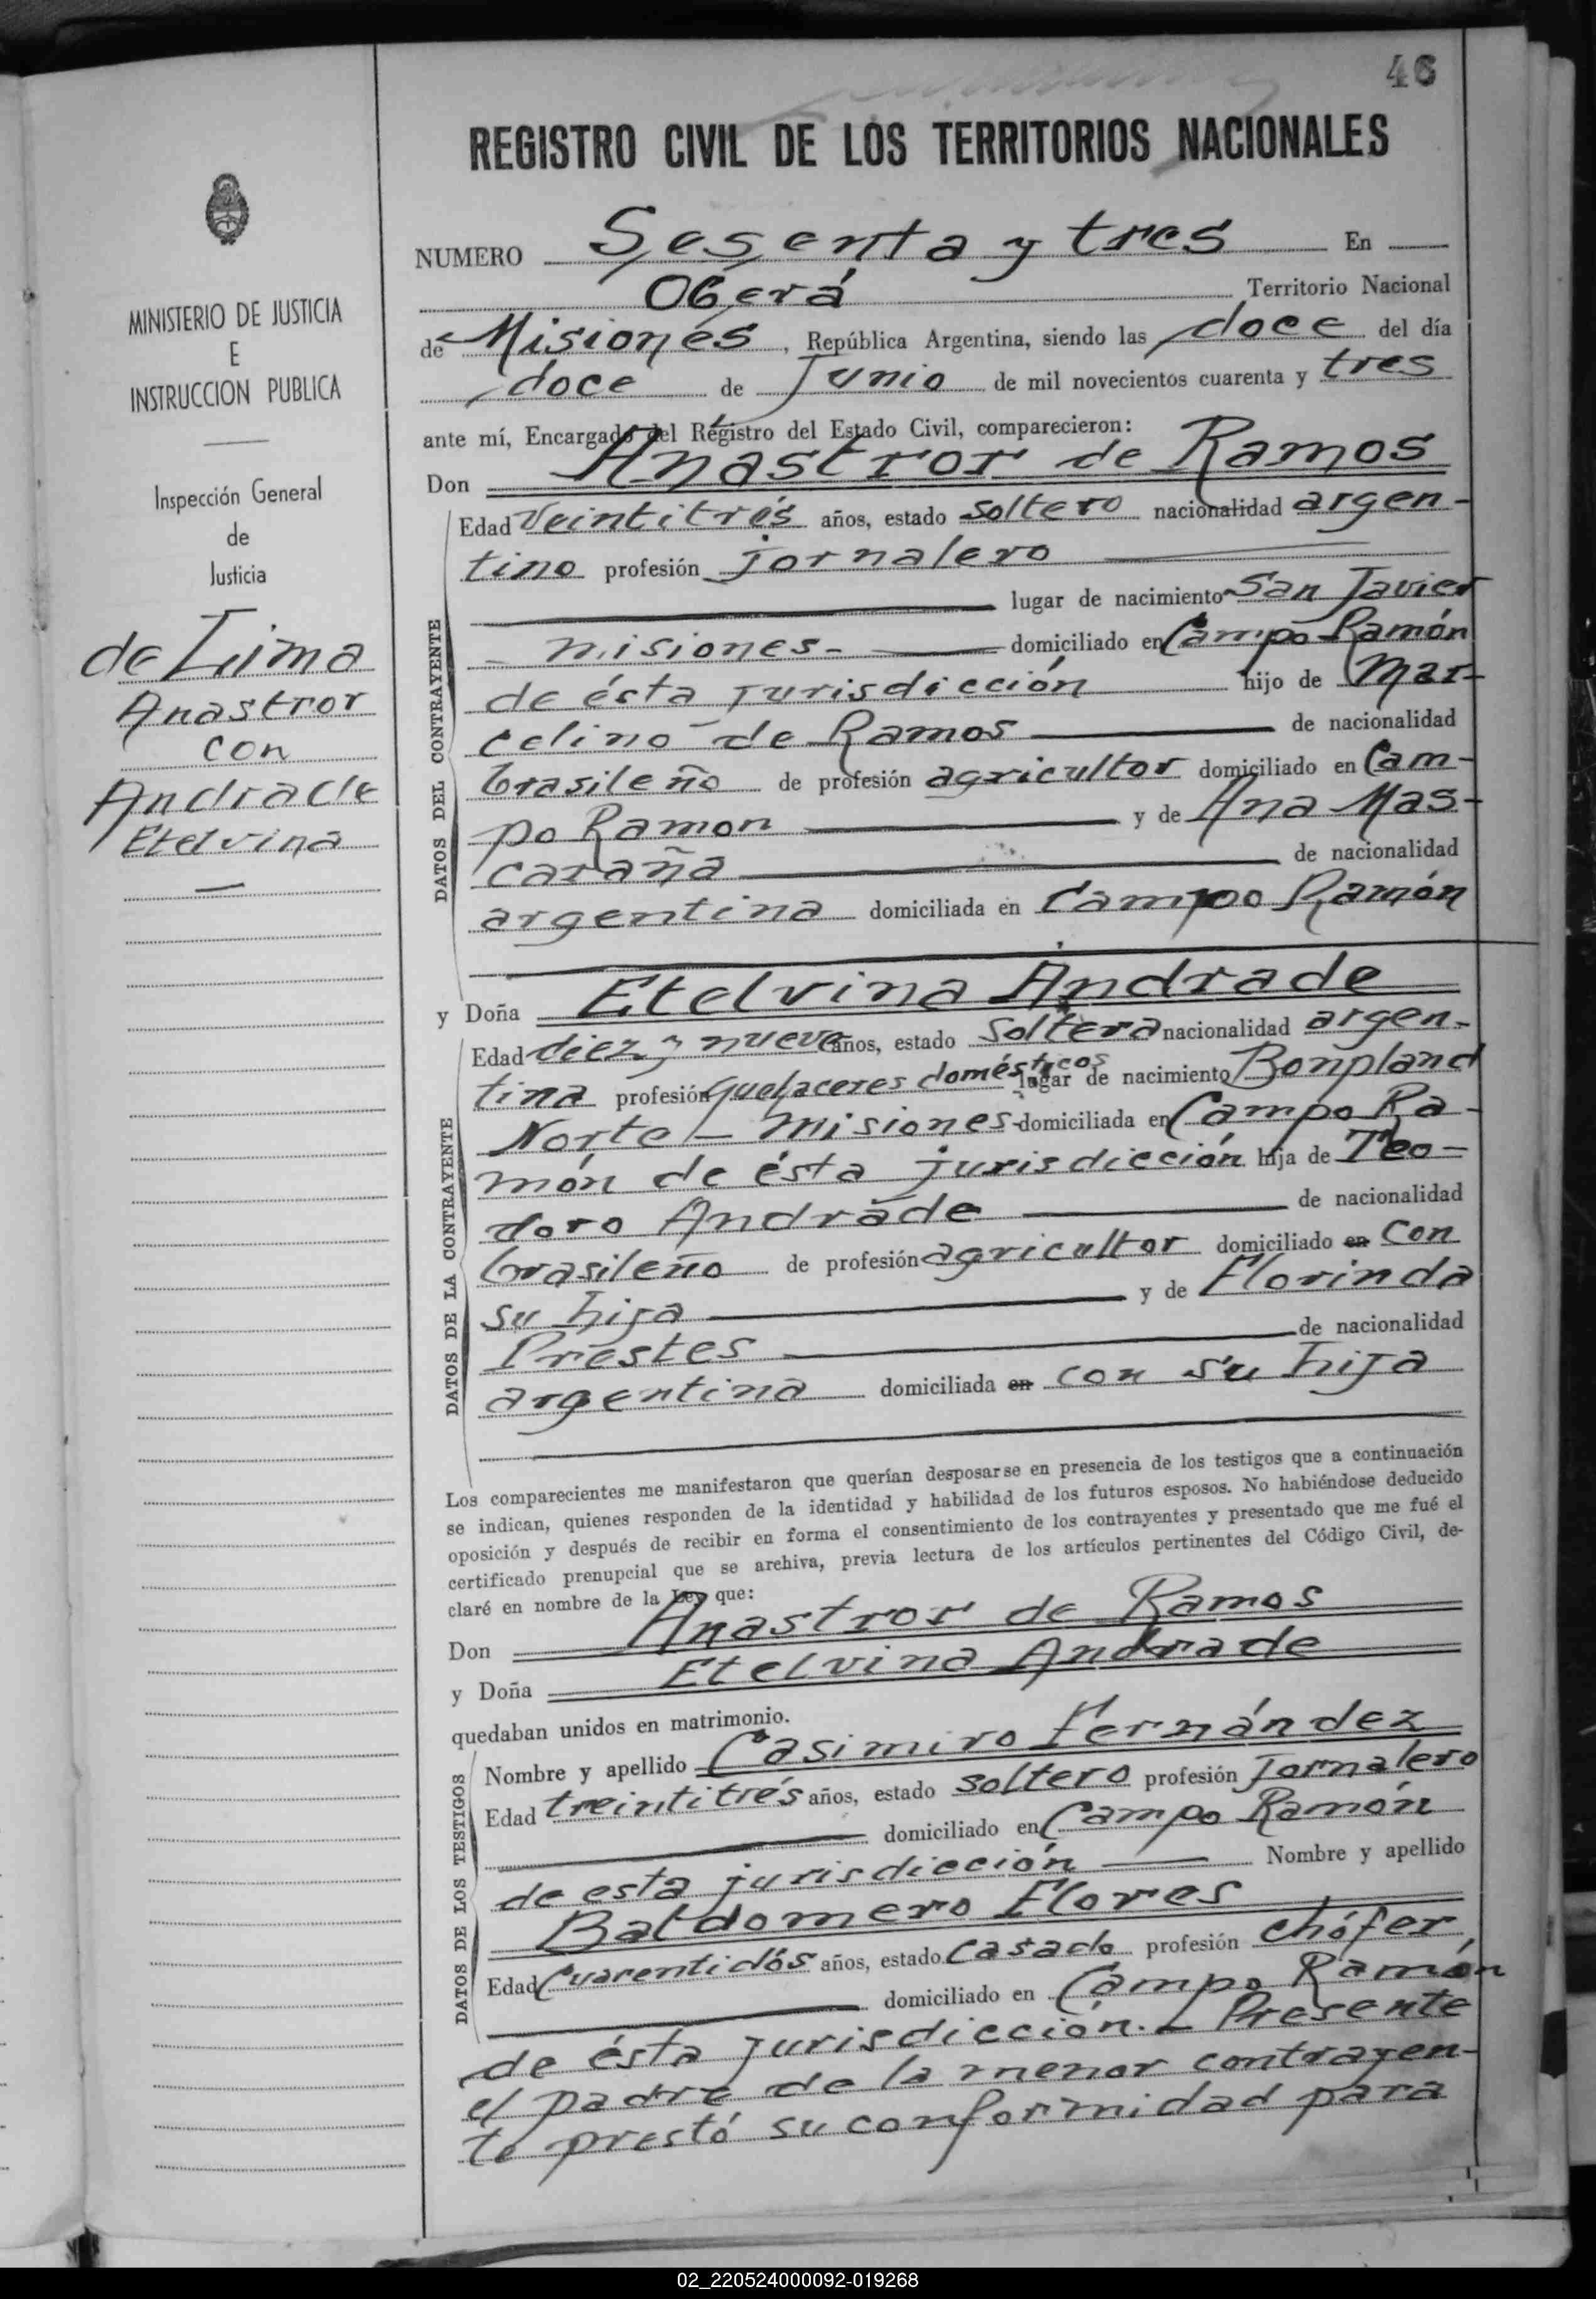 46
REGISTRO CIVIL DE LOS TERRITORIOS NACIONALES
MINISTERIO DE JUSTICIA
E
INSTRUCCION PUBLICA
Inspección General
de
Justicia
de Lima
Anastror
con
Andrade
Etelvina
NUMERO Sesenta y tres En
Oberá Territorio Nacional
de Misiones, República Argentina, siendo las doce del día
doce de Junio de mil novecientos cuarenta y tres
ante mí, Encargado del Registro del Estado Civil, comparecieron:
Don Anastror de Ramos
DATOS DEL CONTRAYENTE
Edad Veintitrés años, estado soltero nacionalidad argen-
tino profesión jornalero
lugar de nacimiento San Javier
- misiones - domiciliado en Campo Ramón
de ésta jurisdicción hijo de Mar-
celino de Ramos de nacionalidad
brasileño de profesión agricultor domiciliado en Cam-
po Ramon y de Ana Mas-
caraña de nacionalidad
argentina domiciliada en Campo Ramón
y Doña Etelvina Andrade
DATOS DE LA CONTRAYENTE
Edad diez y nueve años, estado Soltera nacionalidad argen-
tina profesión quehaceres domésticos lugar de nacimiento Bonpland
Norte - Misiones - domiciliada en Campo Ra-
món de ésta jurisdicción hija de Teo-
doro Andrade de nacionalidad
brasileño de profesión agricultor domiciliado en con
su hija y de Florinda
Prestes de nacionalidad
argentina domiciliada en con su hija
Los comparecientes me manifestaron que querían desposarse en presencia de los testigos que a continuación
se indican, quienes responden de la identidad y habilidad de los futuros esposos. No habiéndose deducido
oposición y después de recibir en forma el consentimiento de los contrayentes y presentado que me fué el
certificado prenupcial que se archiva, previa lectura de los artículos pertinentes del Código Civil, de-
claré en nombre de la Ley que:
Don Anastror de Ramos
y Doña Etelvina Andrade
quedaban unidos en matrimonio.
DATOS DE LOS TESTIGOS
Nombre y apellido Casimiro Fernández
Edad treintitrés años, estado soltero profesión Jornalero
domiciliado en Campo Ramón
de esta jurisdicción Nombre y apellido
Baldomero Flores
Edad Cuarentidós años, estado casado profesión chófer
domiciliado en Campo Ramón
de ésta jurisdicción. - Presente
el padre de la menor contrayen-
te prestó su conformidad para
02_220524000092-019268